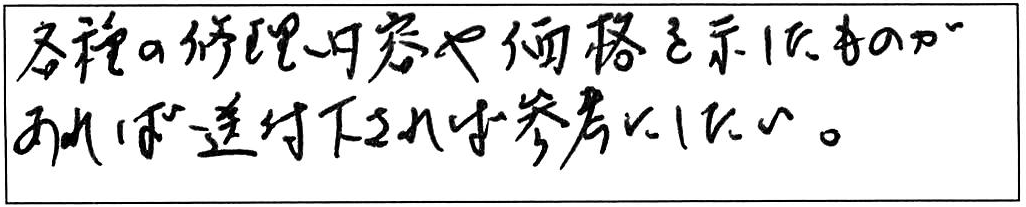 各種の修理内容や価格を示したものが
あれば送付下されば参考にしたい。